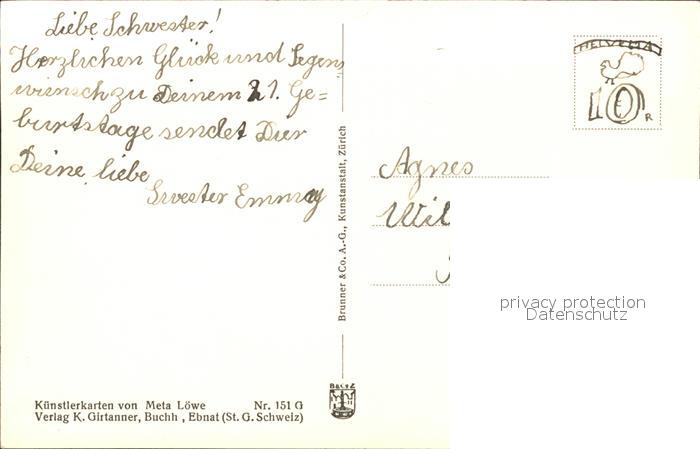 Liebe Schwester!
Herzlichen Glück und Segens
wünsch zu Deinem 21. Ge=
burtstage sendet Dir
Deine liebe
Swester Emmay
HELVETIA
10
R
Agnes
Wil
Brunner & Co. A.-G., Kunstanstalt, Zürich
privacy protection
Datenschutz
B&C Z
Künstlerkarten von Meta Löwe Nr. 151 G
Verlag K. Girtanner, Buchh , Ebnat (St. G. Schweiz)